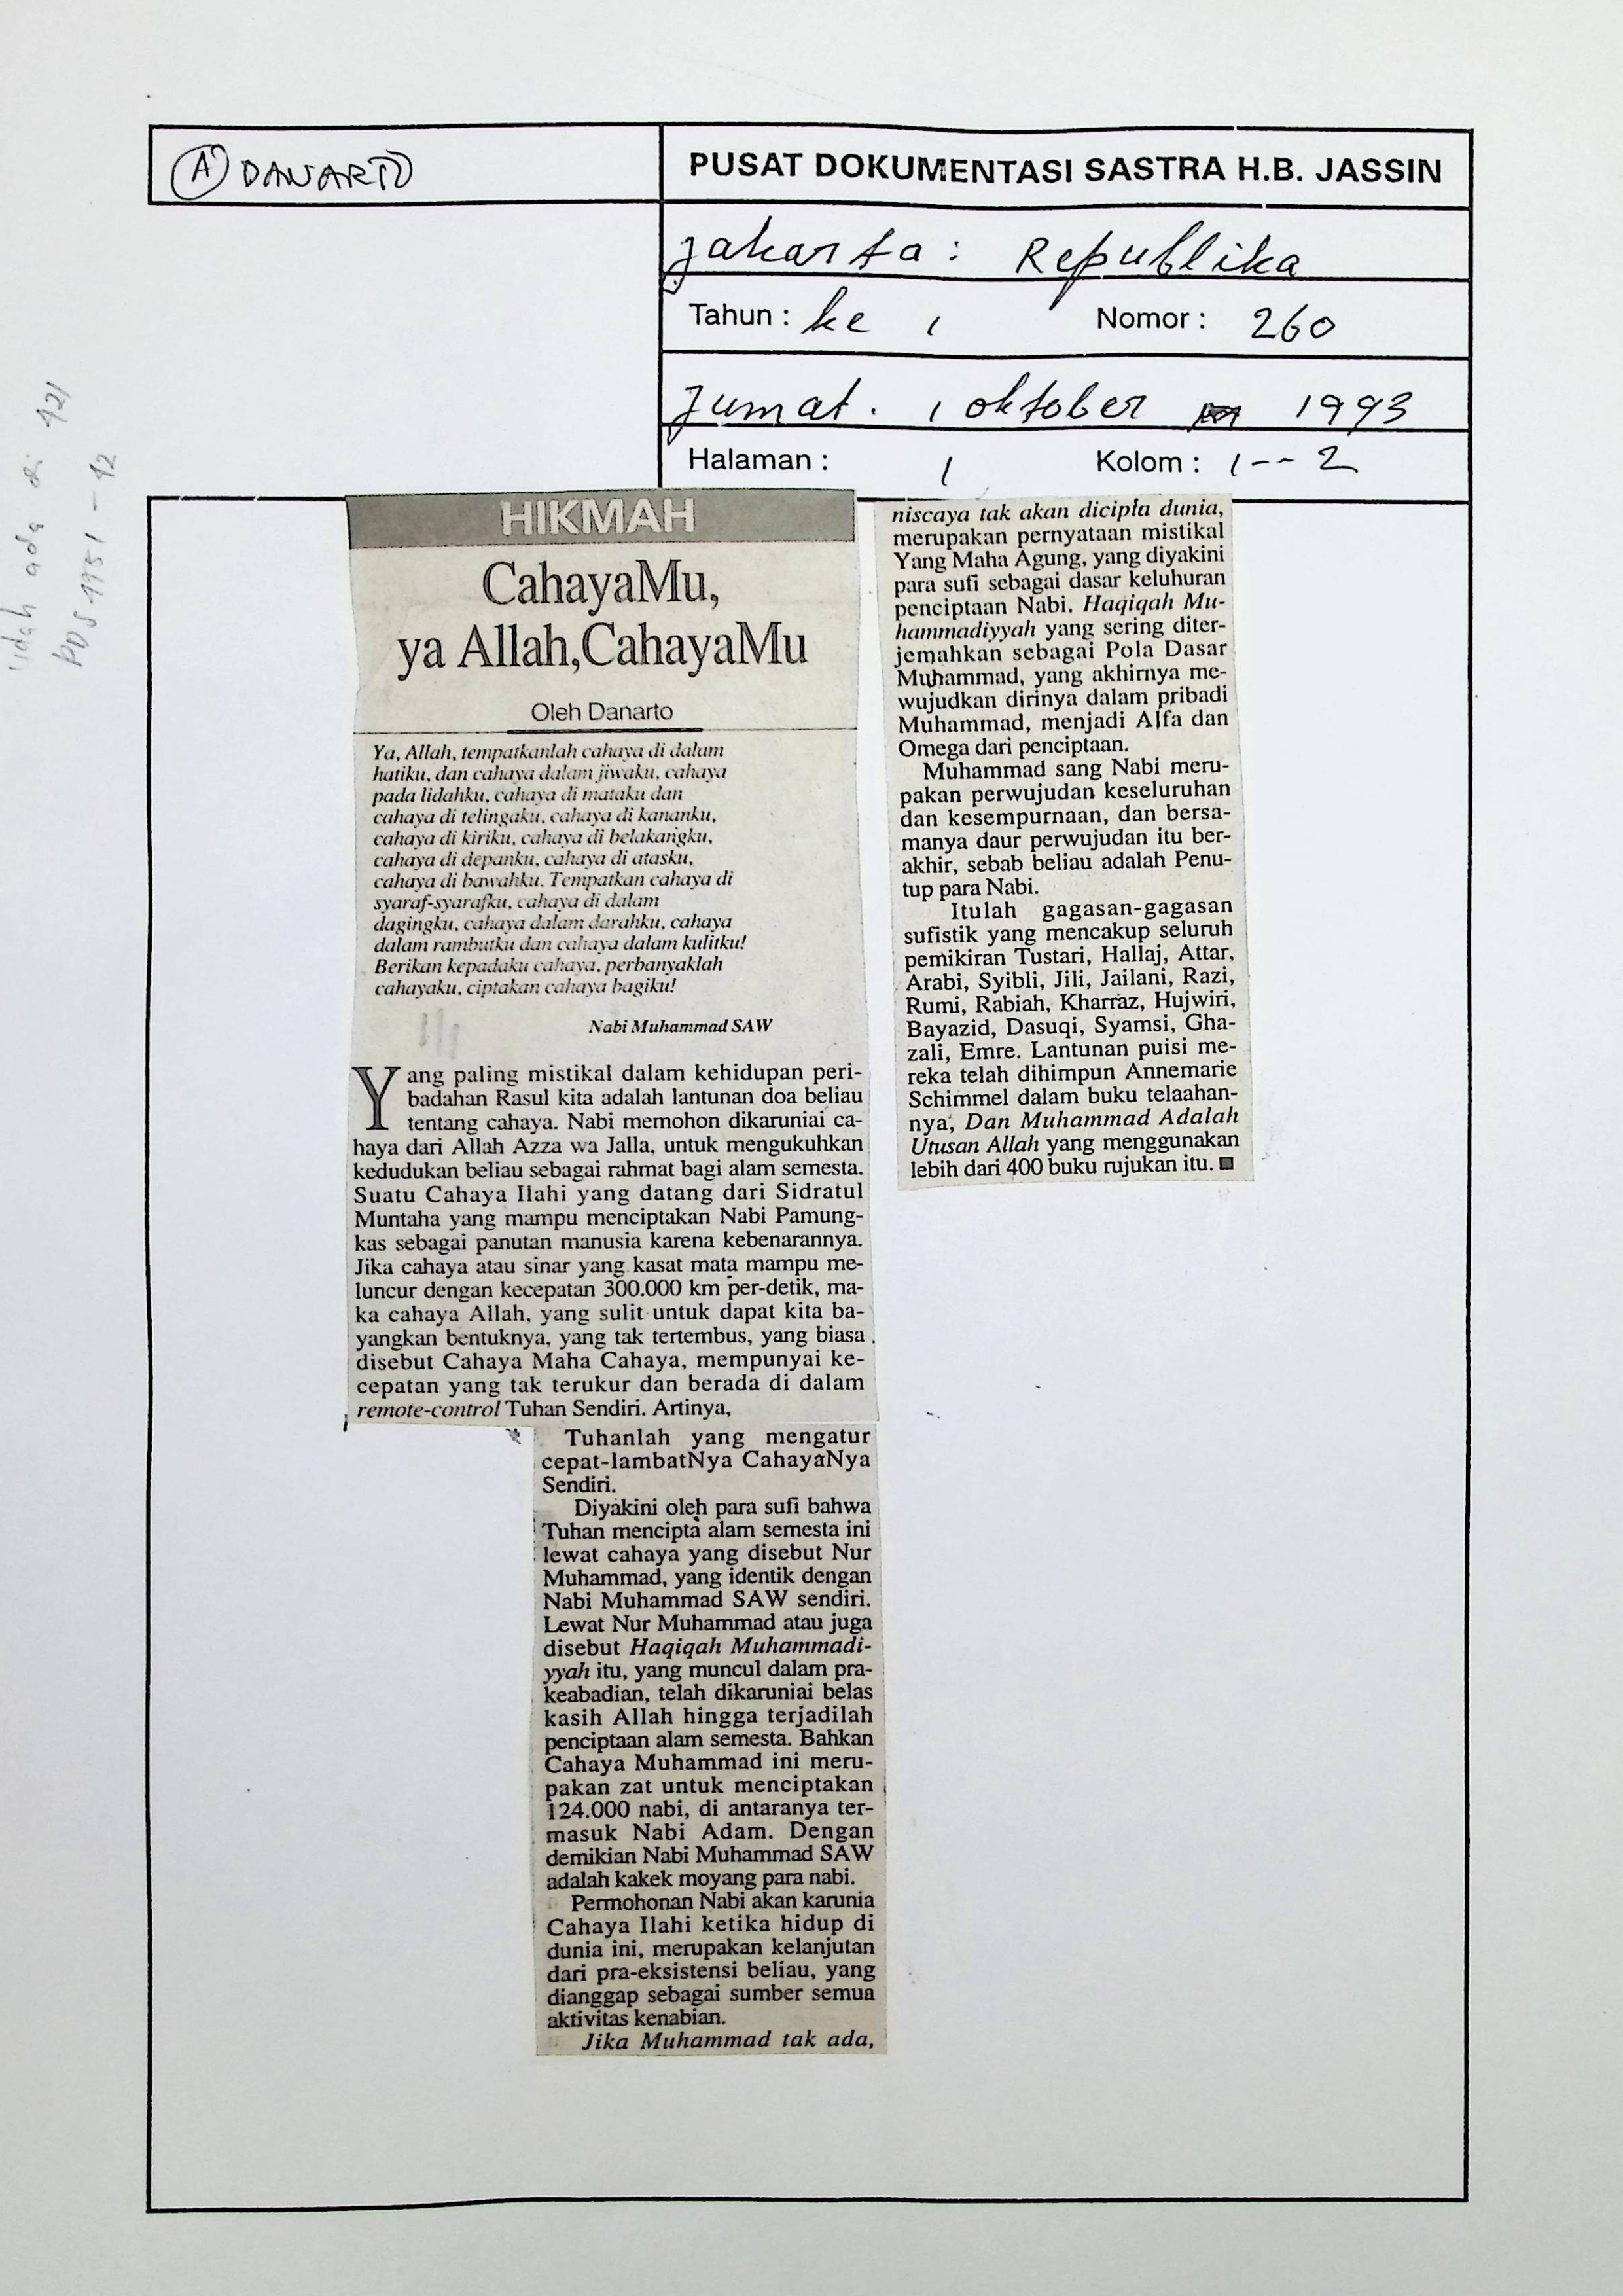 A DANARTO
PUSAT DOKUMENTASI SASTRA H.B. JASSIN
Jakarta : Republika
Tahun : ke 1 Nomor : 260
Jumat. 1 oktober 1993
Halaman : 1 Kolom : 1 -- 2
HIKMAH
CahayaMu,
ya Allah,CahayaMu
Oleh Danarto
Ya, Allah, tempatkanlah cahaya di dalam
hatiku, dan cahaya dalam jiwaku, cahaya
pada lidahku, cahaya di mataku dan
cahaya di telingaku, cahaya di kananku,
cahaya di kiriku, cahaya di belakangku,
cahaya di depanku, cahaya di atasku,
cahaya di bawahku. Tempatkan cahaya di
syaraf-syarafku, cahaya di dalam
dagingku, cahaya dalam darahku, cahaya
dalam rambutku dan cahaya dalam kulitku!
Berikan kepadaku cahaya, perbanyaklah
cahayaku, ciptakan cahaya bagiku!
Nabi Muhammad SAW
Yang paling mistikal dalam kehidupan peri-
badahan Rasul kita adalah lantunan doa beliau
tentang cahaya. Nabi memohon dikaruniai ca-
haya dari Allah Azza wa Jalla, untuk mengukuhkan
kedudukan beliau sebagai rahmat bagi alam semesta.
Suatu Cahaya Ilahi yang datang dari Sidratul
Muntaha yang mampu menciptakan Nabi Pamung-
kas sebagai panutan manusia karena kebenarannya.
Jika cahaya atau sinar yang kasat mata mampu me-
luncur dengan kecepatan 300.000 km per-detik, ma-
ka cahaya Allah, yang sulit untuk dapat kita ba-
yangkan bentuknya, yang tak tertembus, yang biasa
disebut Cahaya Maha Cahaya, mempunyai ke-
cepatan yang tak terukur dan berada di dalam
remote-control Tuhan Sendiri. Artinya,
Tuhanlah yang mengatur
cepat-lambatNya CahayaNya
Sendiri.
Diyakini oleh para sufi bahwa
Tuhan mencipta alam semesta ini
lewat cahaya yang disebut Nur
Muhammad, yang identik dengan
Nabi Muhammad SAW sendiri.
Lewat Nur Muhammad atau juga
disebut Haqiqah Muhammadi-
yyah itu, yang muncul dalam pra-
keabadian, telah dikaruniai belas
kasih Allah hingga terjadilah
penciptaan alam semesta. Bahkan
Cahaya Muhammad ini meru-
pakan zat untuk menciptakan
124.000 nabi, di antaranya ter-
masuk Nabi Adam. Dengan
demikian Nabi Muhammad SAW
adalah kakek moyang para nabi.
Permohonan Nabi akan karunia
Cahaya Ilahi ketika hidup di
dunia ini, merupakan kelanjutan
dari pra-eksistensi beliau, yang
dianggap sebagai sumber semua
aktivitas kenabian.
Jika Muhammad tak ada,
niscaya tak akan dicipta dunia,
merupakan pernyataan mistikal
Yang Maha Agung, yang diyakini
para sufi sebagai dasar keluhuran
penciptaan Nabi. Haqiqah Mu-
hammadiyyah yang sering diter-
jemahkan sebagai Pola Dasar
Muhammad, yang akhirnya me-
wujudkan dirinya dalam pribadi
Muhammad, menjadi Alfa dan
Omega dari penciptaan.
Muhammad sang Nabi meru-
pakan perwujudan keseluruhan
dan kesempurnaan, dan bersa-
manya daur perwujudan itu ber-
akhir, sebab beliau adalah Penu-
tup para Nabi.
Itulah gagasan-gagasan
sufistik yang mencakup seluruh
pemikiran Tustari, Hallaj, Attar,
Arabi, Syibli, Jili, Jailani, Razi,
Rumi, Rabiah, Kharraz, Hujwiri,
Bayazid, Dasuqi, Syamsi, Gha-
zali, Emre. Lantunan puisi me-
reka telah dihimpun Annemarie
Schimmel dalam buku telaahan-
nya, Dan Muhammad Adalah
Utusan Allah yang menggunakan
lebih dari 400 buku rujukan itu.
ada di